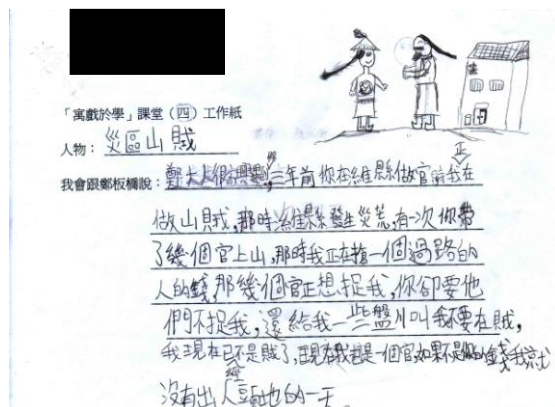 「寓戲於學」課堂(四)工作紙
人物：災區山賊
我會跟鄭板橋說：鄭大人很，三年前你在維縣做官，我正在
做山賊，那時濰縣發生災荒，有一次你帶
了幾個官上山，那時我正在搶一個過路的
人的錢，那幾個官正想捉我，你卻要他
們不捉我，還給我一些盤川叫我不要在賊，
我現在已不是賊了，現在我是一個官，如果不是你給的錢我就
沒有出人頭地的一天。